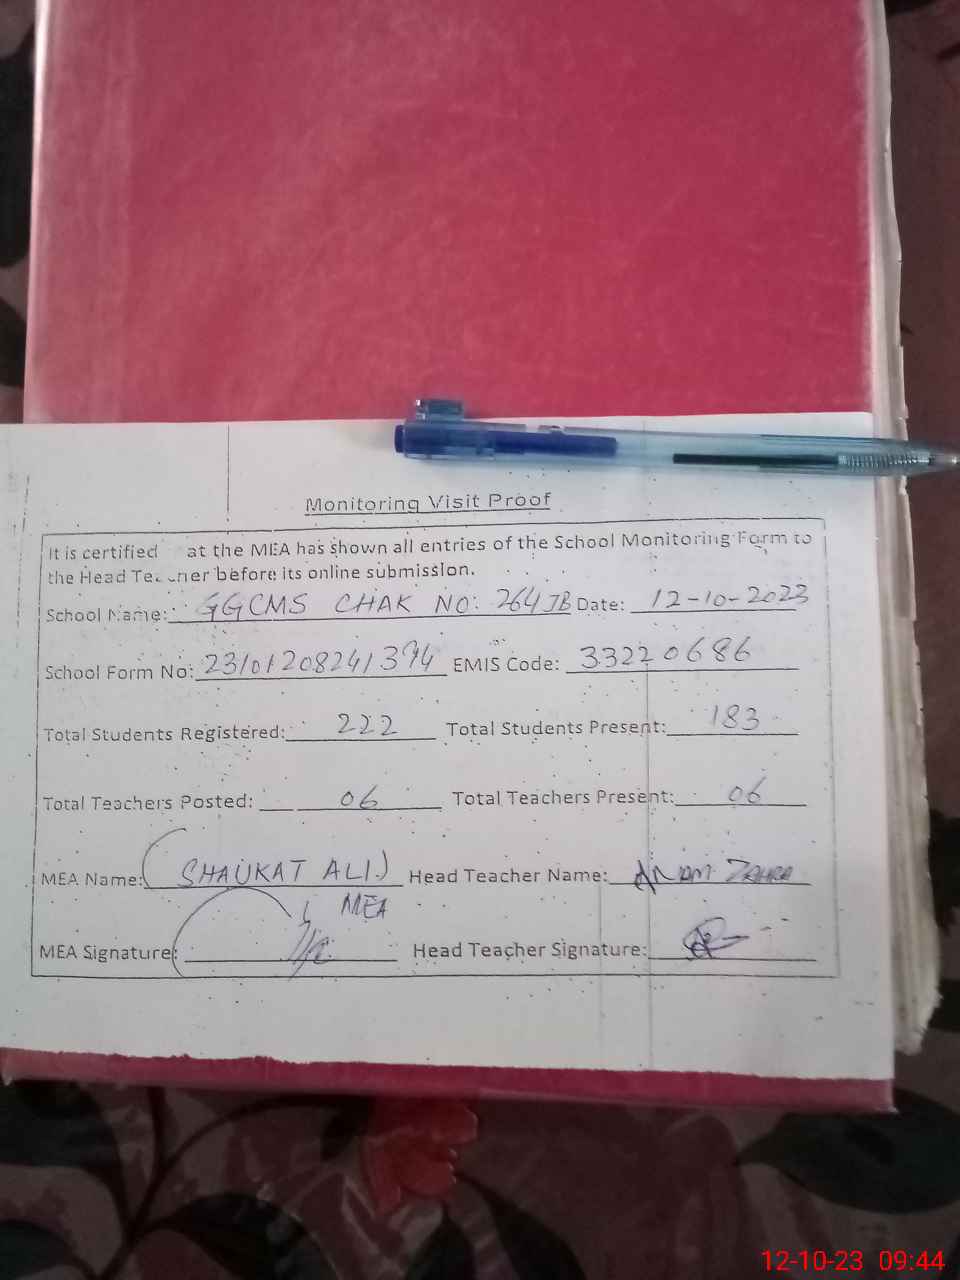 Monitoring Visit Proof
It is certified at the MEA has shown all entries of the School Monitoring Form to
the Head Teacher before its online submission.
School Name: GGCMS CHAK NO: 264 JB Date: 12-10-2023
School Form No: EMIS Code: 33220686
Total Students Registered: 222 Total Students Present: 183
Total Teachers Posted: 06 Total Teachers Present: 06
MEA Name: (SHAUKAT ALI) Head Teacher Name: ANAM ZAHRA
MEA
MEA Signature: Head Teacher Signature:
12-10-23 09:44